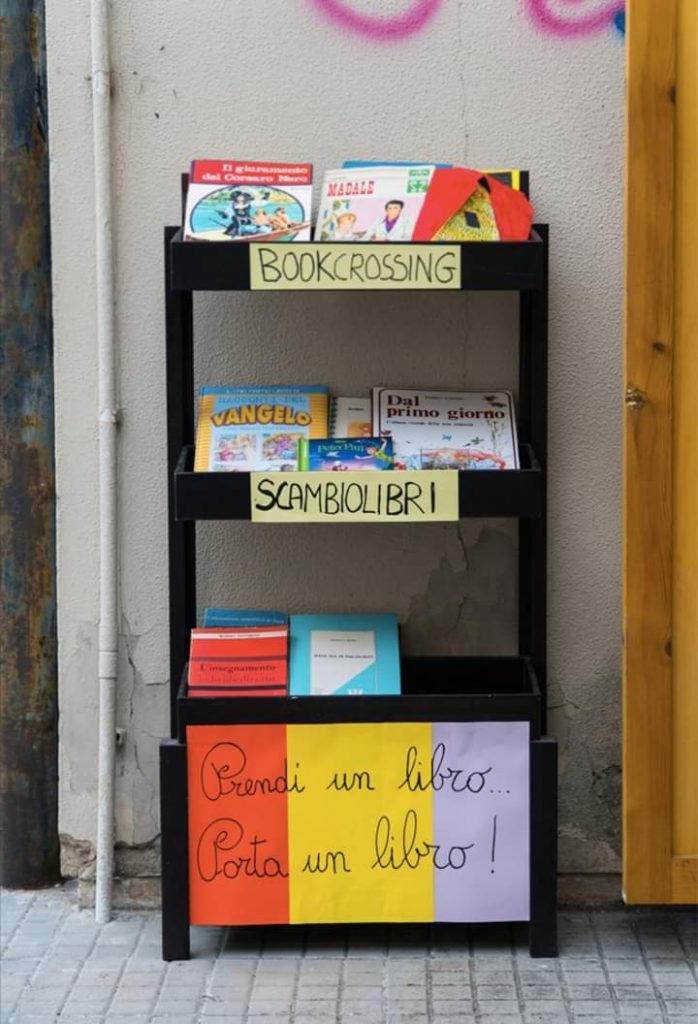 Il giuramento
del Corsaro Nero
MADALE
BOOKCROSSING
RACCONTI DEL
VANGELO
Dal
primo giorno
Peter Pan
SCAMBIOLIBRI
L'insegnamento
individualizzato
Prendi un libro...
Porta un libro!